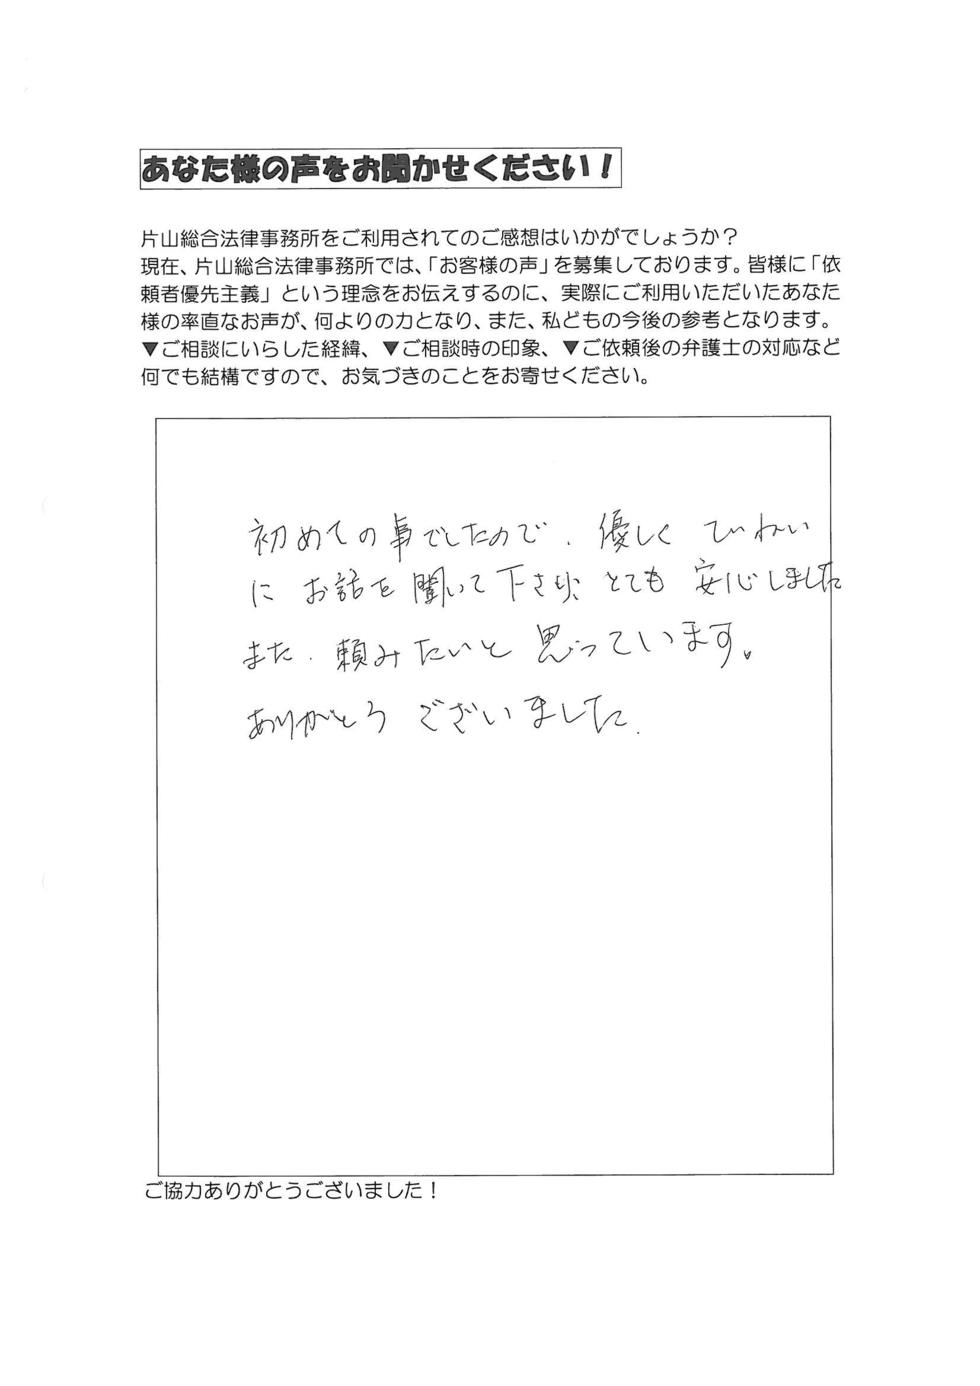 あなた様の声をお聞かせください！
片山総合法律事務所をご利用されてのご感想はいかがでしょうか？
現在、片山総合法律事務所では、「お客様の声」を募集しております。皆様に「依
頼者優先主義」という理念をお伝えするのに、実際にご利用いただいたあなた
様の率直なお声が、何よりの力となり、また、私どもの今後の参考となります。
▼ご相談にいらした経緯、▼ご相談時の印象、▼ご依頼後の弁護士の対応など
何でも結構ですので、お気づきのことをお寄せください。
初めての事でしたので、優しく ていねい
に お話を聞いて下さり、とても 安心しました
また、頼みたいと思っています。
ありがとう ございました.
ご協力ありがとうございました！